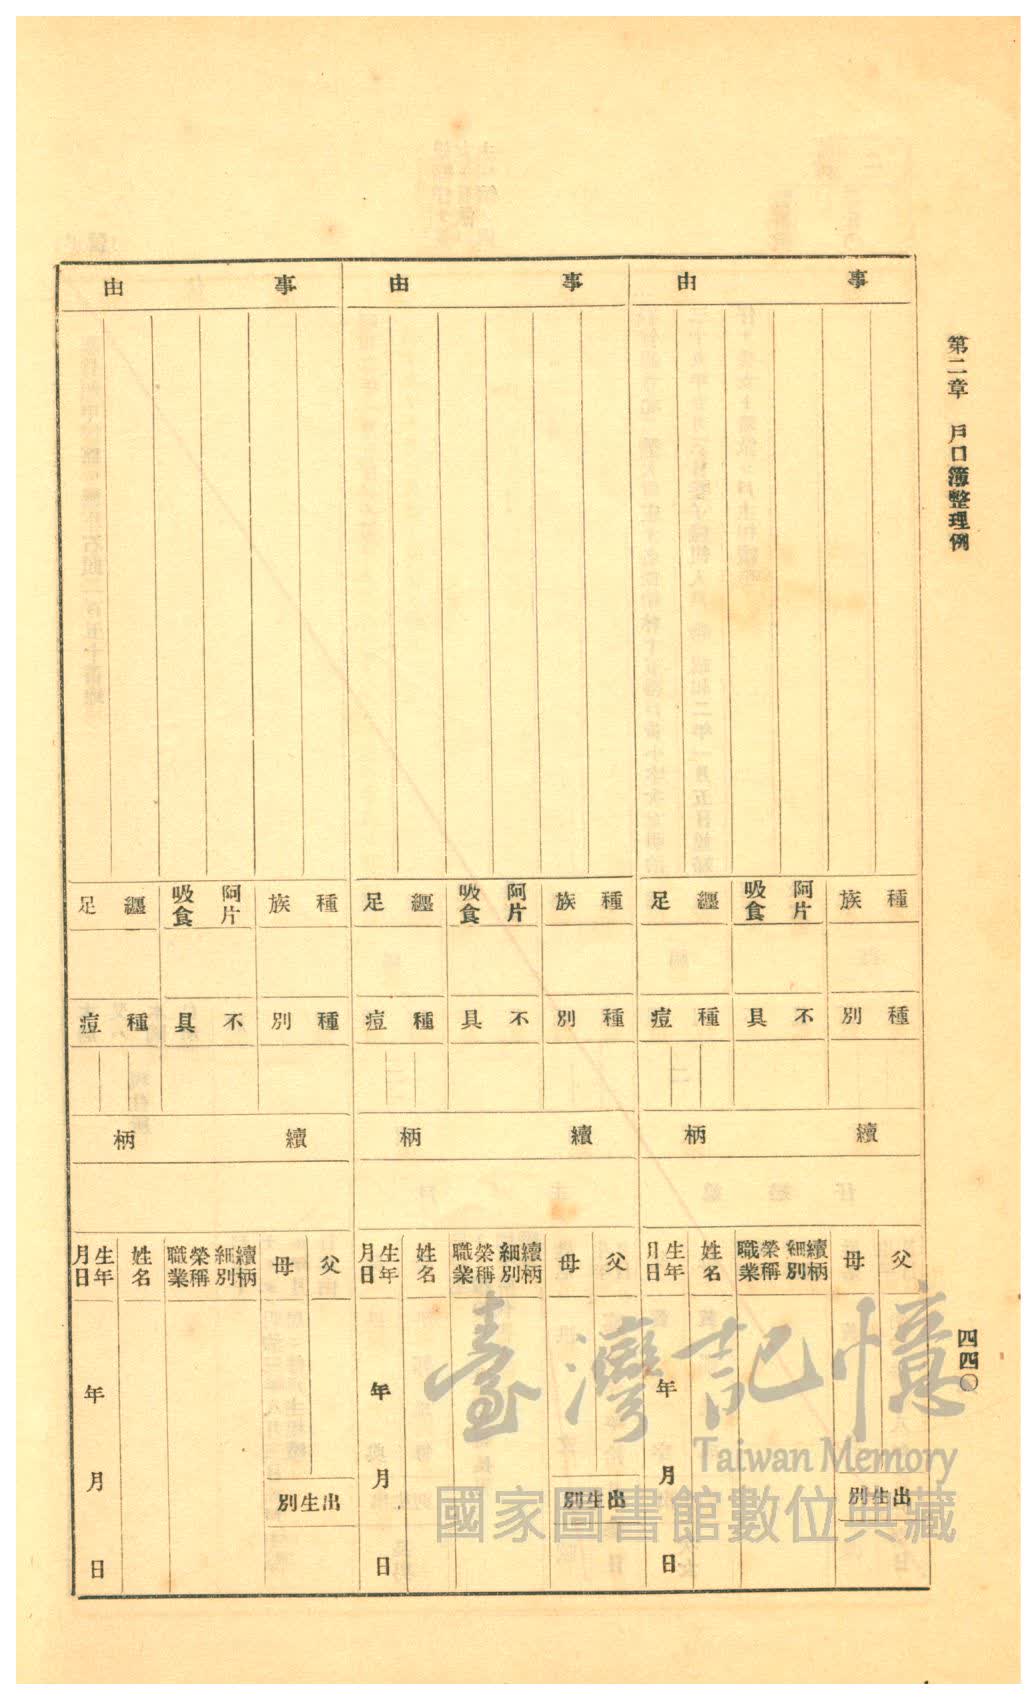 第二章 戶口簿整理例
四四〇
事由
種族
阿片吸食
纏足
種別
不具
種痘
續柄
父
母
出生別
續柄細別
榮稱職業
姓名
生年月日
年月日
事由
種族
阿片吸食
纏足
種別
不具
種痘
續柄
父
母
出生別
續柄細別
榮稱職業
姓名
生年月日
年月日
事由
種族
阿片吸食
纏足
種別
不具
種痘
續柄
父
母
出生別
續柄細別
榮稱職業
姓名
生年月日
年月日
臺灣記憶
Taiwan Memory
國家圖書館數位典藏